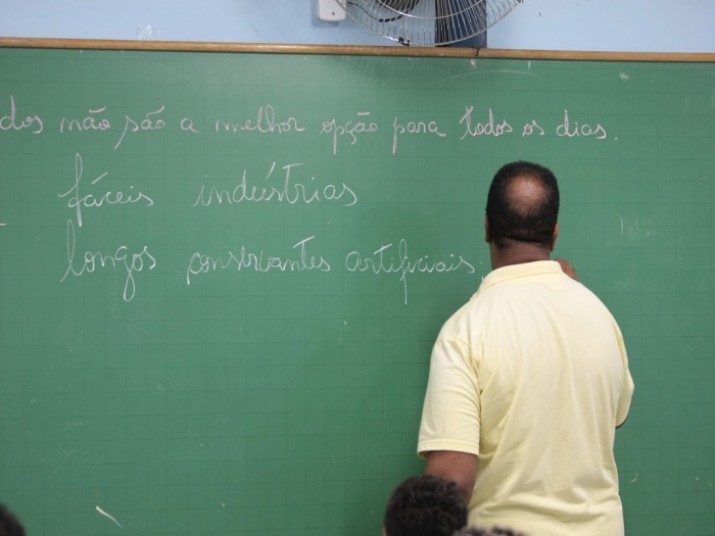 dos não são a melhor opção para todos os dias.
fáceis indústrias
longos consrvantes artificiais,